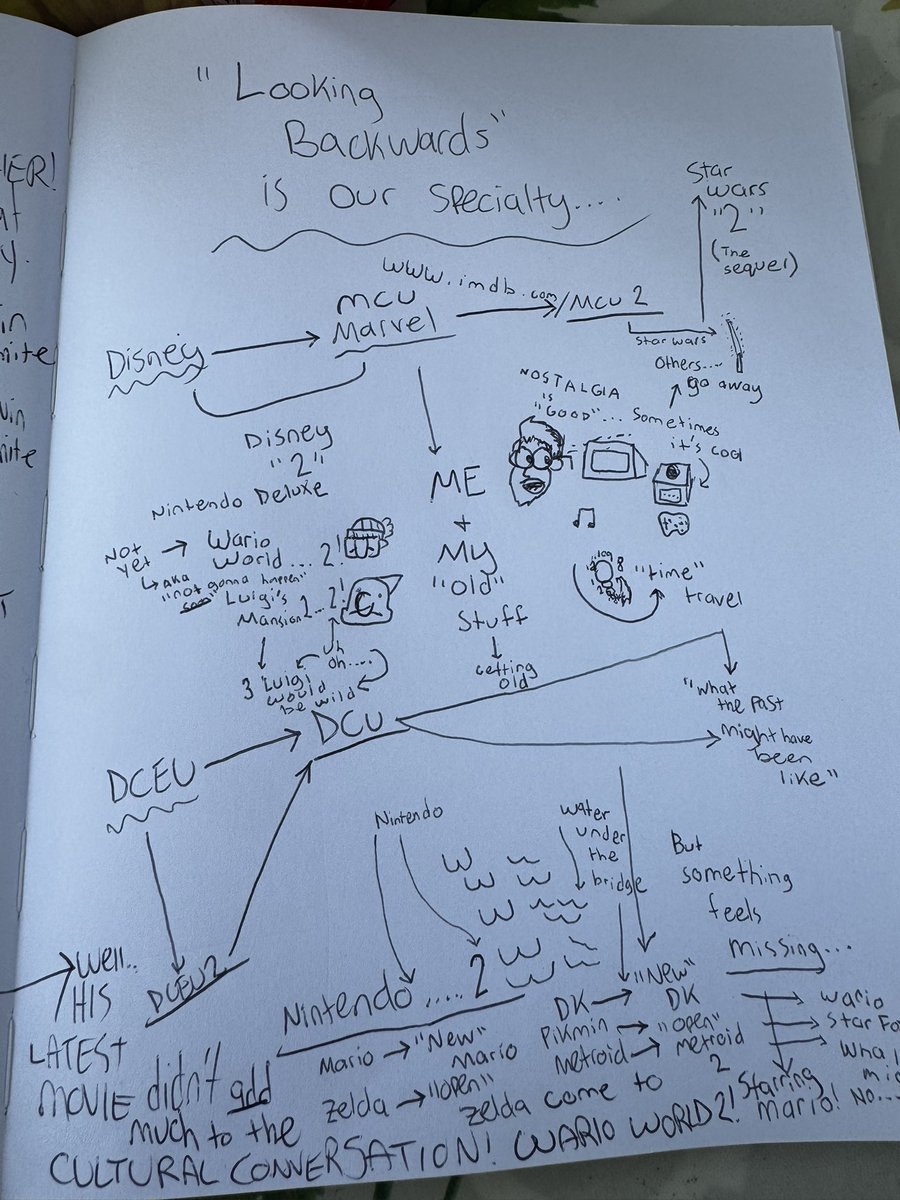 "Looking
Backwards"
is our specialty....
HER!
at
y.
in
nite
win
nite
T
Star
wars
"2"
(The
sequel)
www.imdb.com/MCU 2
MCU
Marvel
Disney
Star wars
Others....
go away
Disney
"2"
Nintendo Deluxe
NOSTALGIA
is
"GOOD"... Sometimes
it's cool
ME
+
My
"old"
Stuff
getting
old
Not
yet → Wario
World ... 2!
↳ AKA
"not gonna happen"
Luigi's
Mansion 2...2!
uh
oh....
3 Luigi
would
be wild
"time"
travel
DCU
DCEU
DCEU 2
"what
the past
might have
been
like"
Nintendo
water
under
the
bridge
W
W W
W
W
W
But
something
feels
missing...
Nintendo ..... 2
Mario → "New"
Mario
Zelda → "open"
Zelda come to
DK → "New"
DK
Pikmin → "open"
Metroid → Metroid
2
Wario
Star Fo
Wha
mi
Starring
Mario! No...
Well..
HIS
LATEST
MOVIE didn't add
much to the
CULTURAL CONVERSATION! WARIO WORLD 2!